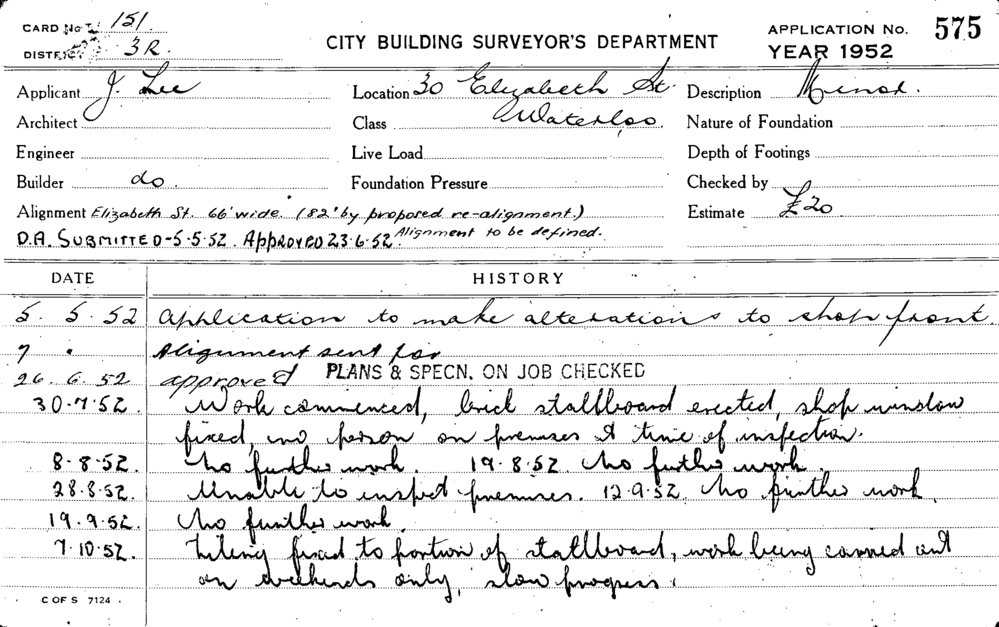 CARD No. 151
DISTRICT 3R.
CITY BUILDING SURVEYOR'S DEPARTMENT
APPLICATION No. 575
YEAR 1952
Applicant J. Lee
Location 30 Elizabeth St.
Description Minor.
Architect
Class Waterloo
Nature of Foundation
Engineer
Live Load
Depth of Footings
Builder do
Foundation Pressure
Checked by
Alignment Elizabeth St. 66' wide. (82' by proposed re-alignment.)
Estimate £20
D.A. SUBMITTED-5-5-52. APPROVED 23.6.52. Alignment to be defined.
DATE HISTORY
5. 5. 52 Application to make alterations to shop front.
7 " Alignment sent for
26. 6. 52 approved PLANS & SPECN. ON JOB CHECKED
30.7.52. Work commenced, brick stallboard erected, shop window
fixed, no person on premises at time of inspection.
8.8.52. No further work. 19.8.52. No further work.
28.8.52. Unable to inspect premises. 12.9.52. No further work.
19.9.52. No further work.
7.10.52. Tileing fixed to portion of stallboard, work being carried out
on weekends only, slow progress.
C OF S 7124